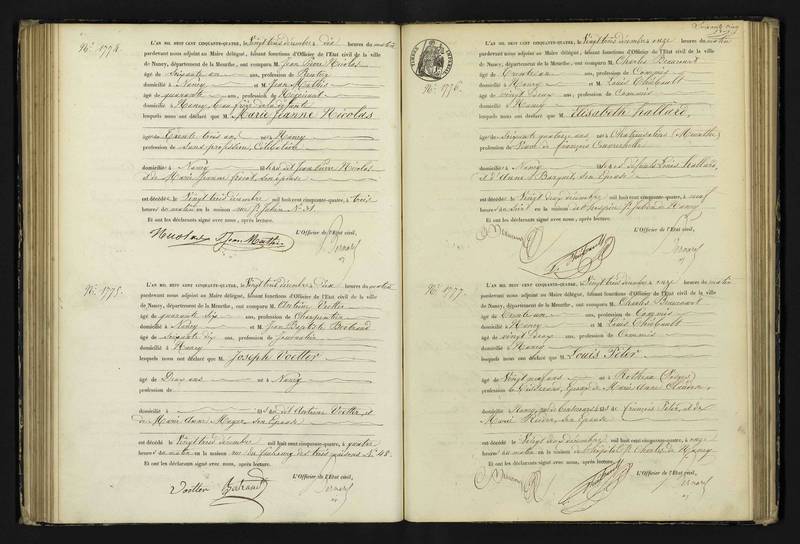 No. 1774.
L'AN MIL HUIT CENT CINQUANTE-QUATRE, le Vingt trois décembre à dix heures du matin
pardevant nous adjoint au Maire délégué, faisant fonctions d'Officier de l'Etat civil de la ville
de Nancy, département de la Meurthe, ont comparu M. Jean Pierre Nicolas
âgé de Soixante un ans, profession de Rentier
domicilié à Nancy et M. Jean Mathis
âgé de quarante ans, profession de
domicilié à Nancy
lesquels nous ont déclaré que M. Marie Jeanne Nicolas
âgée de Trente trois ans née à Nancy
profession de sans profession, Célibataire
domiciliée à Nancy fille dudit Jean Pierre Nicolas
et de Marie Jeanne son épouse
est décédée le Vingt trois décembre mil huit cent cinquante-quatre, à trois
heures du matin en la maison rue St Julien No. 31.
Et ont les déclarants signé avec nous, après lecture.
L'Officier de l'Etat civil,
Nicolas Jean Mathis Bernard
No. 1775.
L'AN MIL HUIT CENT CINQUANTE-QUATRE, le Vingt trois décembre à Dix heures du matin
pardevant nous adjoint au Maire délégué, faisant fonctions d'Officier de l'Etat civil de la ville
de Nancy, département de la Meurthe, ont comparu M. Antoine Voetter
âgé de quarante six ans, profession de Charpentier
domicilié à Nancy et M. Jean Baptiste
âgé de Soixante dix ans, profession de Journalier
domicilié à Nancy
lesquels nous ont déclaré que M. Joseph Voetter
âgé de Deux ans né à Nancy
profession de
domicilié à fils dudit Antoine Voetter et
de Marie Anne Meyer son épouse
est décédé le Vingt trois décembre mil huit cent cinquante-quatre, à quatre
heures du matin en la maison rue du faubourg des trois maisons No. 48.
Et ont les déclarants signé avec nous, après lecture.
L'Officier de l'Etat civil,
Voetter Bernard
No. 1776.
L'AN MIL HUIT CENT CINQUANTE-QUATRE, le Vingt trois décembre à onze heures du matin
pardevant nous adjoint au Maire délégué, faisant fonctions d'Officier de l'Etat civil de la ville
de Nancy, département de la Meurthe, ont comparu M. Charles
âgé de Trente un ans, profession de Commis
domicilié à Nancy et M. Louis Thiébault
âgé de vingt deux ans, profession de Commis
domicilié à Nancy
lesquels nous ont déclaré que M. Elisabeth Hallard
âgée de Soixante quatorze ans née à Chateausalins (Meurthe)
profession de Veuve de françois
domiciliée à Nancy fille de défunts Louis Hallard,
et d'Anne son Epouse
est décédée le Vingt deux décembre mil huit cent cinquante-quatre, à neuf
heures du soir en la maison de l'hospice St Julien de Nancy
Et ont les déclarants signé avec nous, après lecture.
L'Officier de l'Etat civil,
Bernard
No. 1777.
L'AN MIL HUIT CENT CINQUANTE-QUATRE, le Vingt trois décembre à onze heures du matin
pardevant nous adjoint au Maire délégué, faisant fonctions d'Officier de l'Etat civil de la ville
de Nancy, département de la Meurthe, ont comparu M. Charles
âgé de Trente un ans, profession de Commis
domicilié à Nancy et M. Louis Thiébault
âgé de vingt deux ans, profession de Commis
domicilié à Nancy
lesquels nous ont déclaré que M. Louis Péter
âgé de Vingt neuf ans né à (Vosges)
profession de Epoux de Marie Anne
domicilié à Nancy fils de françois Péter, et de
Marie son épouse
est décédé le Vingt deux décembre mil huit cent cinquante-quatre, à onze
heures du matin en la maison de l'hôpital St Charles de Nancy
Et ont les déclarants signé avec nous, après lecture.
L'Officier de l'Etat civil,
Bernard